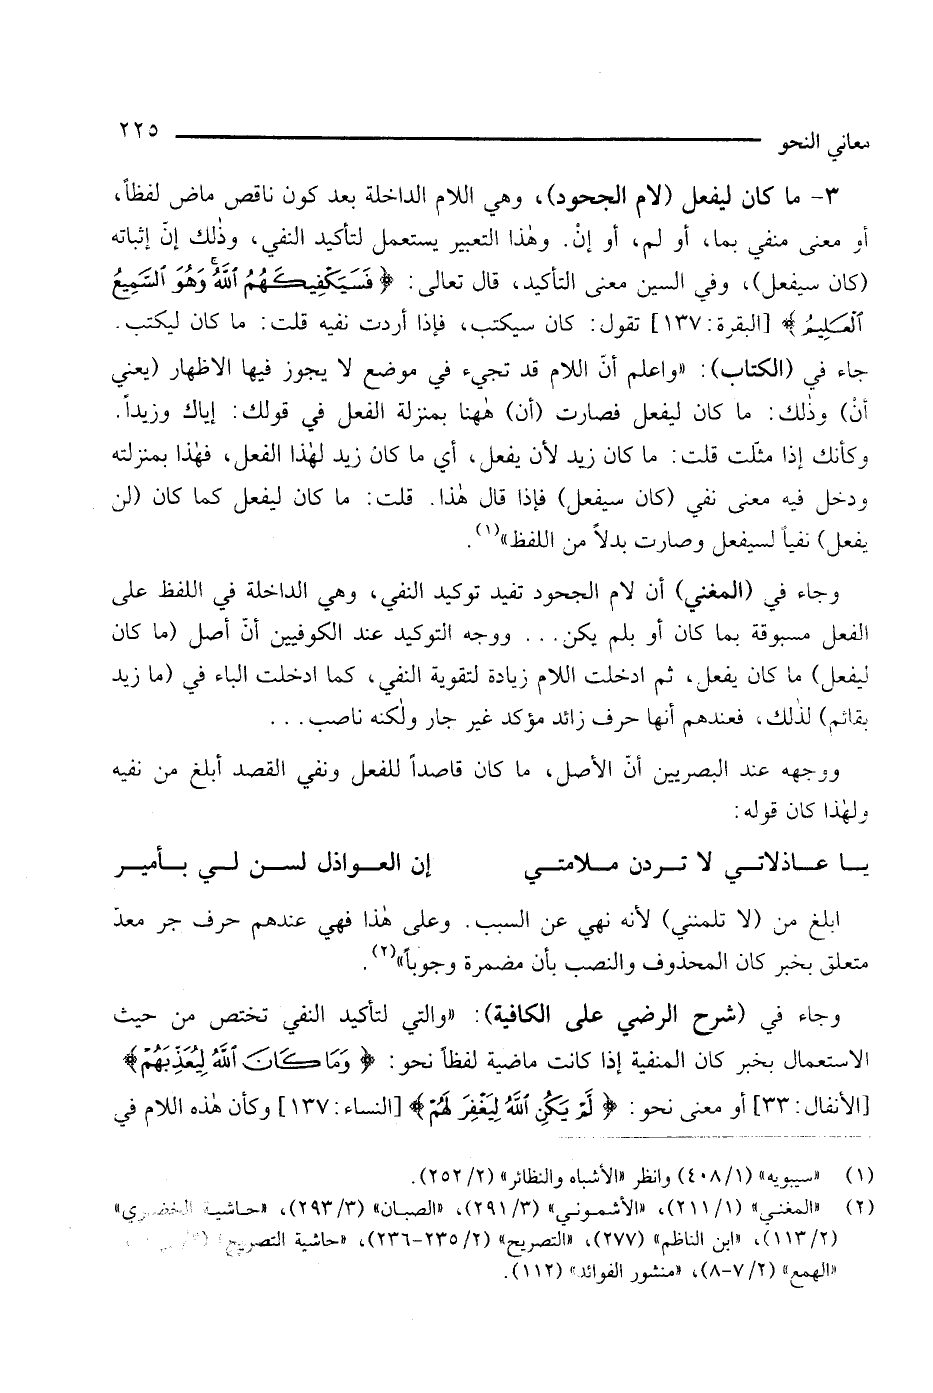 معاني النحو ٢٢٥
٣- ما كان ليفعل (لام الجحود)، وهي اللام الداخلة بعد كون ناقص ماض لفظاً،
أو معنى منفي بما، أو لم، أو إنْ. وهٰذا التعبير يستعمل لتأكيد النفي، وذٰلك إنّ إثباته
(كان سيفعل)، وفي السين معنى التأكيد، قال تعالى: ﴿ فَسَيَكْفِيكَهُمُ ٱللَّهُ وَهُوَ ٱلسَّمِيعُ
ٱلْعَلِيمُ ﴾ [البقرة: ١٣٧] تقول: كان سيكتب، فإذا أردت نفيه قلت: ما كان ليكتب.
جاء في (الكتاب): «واعلم أنّ اللام قد تجيء في موضع لا يجوز فيها الاظهار (يعني
أنْ) وذٰلك: ما كان ليفعل فصارت (أن) هٰهنا بمنزلة الفعل في قولك: إياك وزيداً.
وكأنك إذا مثّلت قلت: ما كان زيد لأن يفعل، أي ما كان زيد لهٰذا الفعل، فهٰذا بمنزلته
ودخل فيه معنى نفي (كان سيفعل) فإذا قال هٰذا. قلت: ما كان ليفعل كما كان (لن
يفعل) نفياً لسيفعل وصارت بدلاً من اللفظ»(١).
وجاء في (المغني) أن لام الجحود تفيد توكيد النفي، وهي الداخلة في اللفظ على
الفعل مسبوقة بما كان أو بلم يكن... ووجه التوكيد عند الكوفيين أنّ أصل (ما كان
ليفعل) ما كان يفعل، ثم ادخلت اللام زيادة لتقوية النفي، كما ادخلت الباء في (ما زيد
بقائم) لذٰلك، فعندهم أنها حرف زائد مؤكد غير جار ولٰكنه ناصب...
ووجهه عند البصريين أنّ الأصل، ما كان قاصداً للفعل ونفي القصد أبلغ من نفيه
ولهٰذا كان قوله:
يـا عـاذلاتـي لا تـردن مـلامتـي إن العـواذل لسـن لـي بـأميـر
ابلغ من (لا تلمنني) لأنه نهي عن السبب. وعلى هٰذا فهي عندهم حرف جر معدّ
متعلق بخبر كان المحذوف والنصب بأن مضمرة وجوباً»(٢).
وجاء في (شرح الرضي على الكافية): «والتي لتأكيد النفي تختص من حيث
الاستعمال بخبر كان المنفية إذا كانت ماضية لفظاً نحو: ﴿ وَمَا كَانَ ٱللَّهُ لِيُعَذِّبَهُمْ ﴾
[الأنفال: ٣٣] أو معنى نحو: ﴿ لَمْ يَكُنِ ٱللَّهُ لِيَغْفِرَ لَهُمْ ﴾ [النساء: ١٣٧] وكأن هٰذه اللام في
(١) «سيبويه» (١/ ٤٠٨) وانظر «الأشباه والنظائر» (٢/ ٢٥٢).
(٢) «المغني» (١/ ٢١١)، «الأشموني» (٣/ ٢٩١)، «الصبان» (٣/ ٢٩٣)، «حاشية الخضري»
(٢/ ١١٣)، «ابن الناظم» (٢٧٧)، «التصريح» (٢/ ٢٣٥-٢٣٦)، «حاشية التصريح»
«الهمع» (٢/ ٧-٨)، «منشور الفوائد» (١١٢).